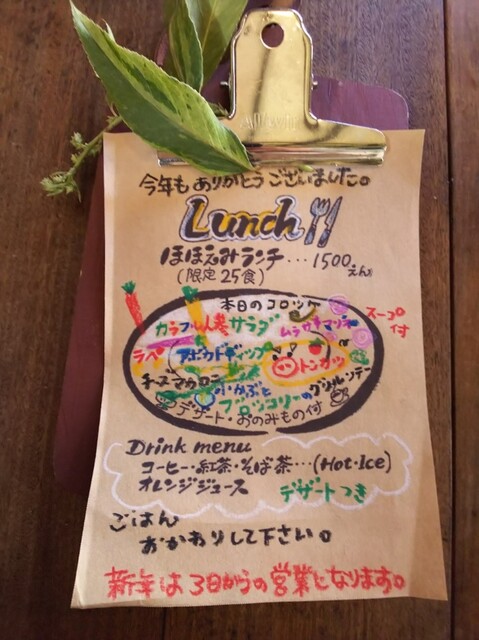 今年も ありがとうございました。
Lunch
ほほえみランチ…1500えん
(限定25食)
本日のコロッケ
カラフル人参サラダ
スープ付
ラペ
アボカドディップ
トンカツ
チーズマカロニ
小かぶと
ブロッコリーの
デザート・おのみもの付
Drink menu
コーヒー・紅茶・そば茶…(Hot・Ice)
オレンジジュース
デザートつき
ごはん
おかわりして下さい。
新年は3日からの営業になります。